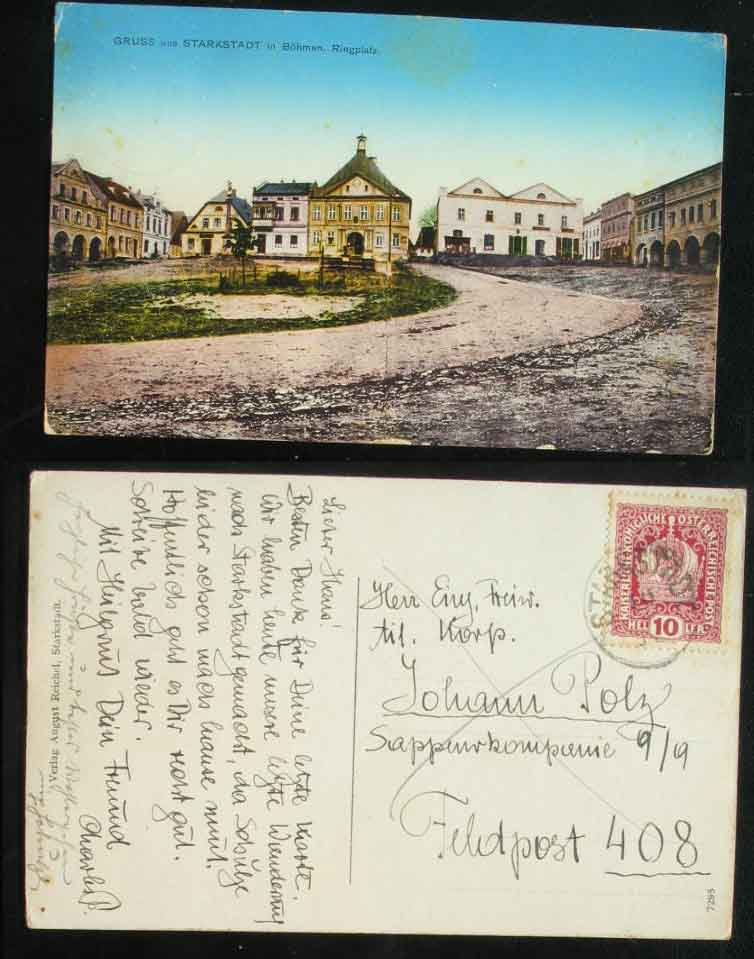 GRUSS aus STARKSTADT in Böhmen. Ringplatz.
Lieber Hans!
Besten Dank für Deine letzte Karte.
Wir haben heute unsere letzte Wanderung
nach Starkstadt gemacht, da Schulze
leider schon nach hause muß.
Hoffentlich geht es Dir recht gut.
Schreibe bald wieder.
Mit Heilgruß Dein Freund
Charles P.
Verlag August Reichel, Starkstadt.
KAISERLICHE KÖNIGLICHE ÖSTERREICHISCHE POST
HELLER 10
Herr Einj. Freiw.
tit. Korp.
Johann Polz
Sappeurkompanie 9/9
Feldpost 408
7295